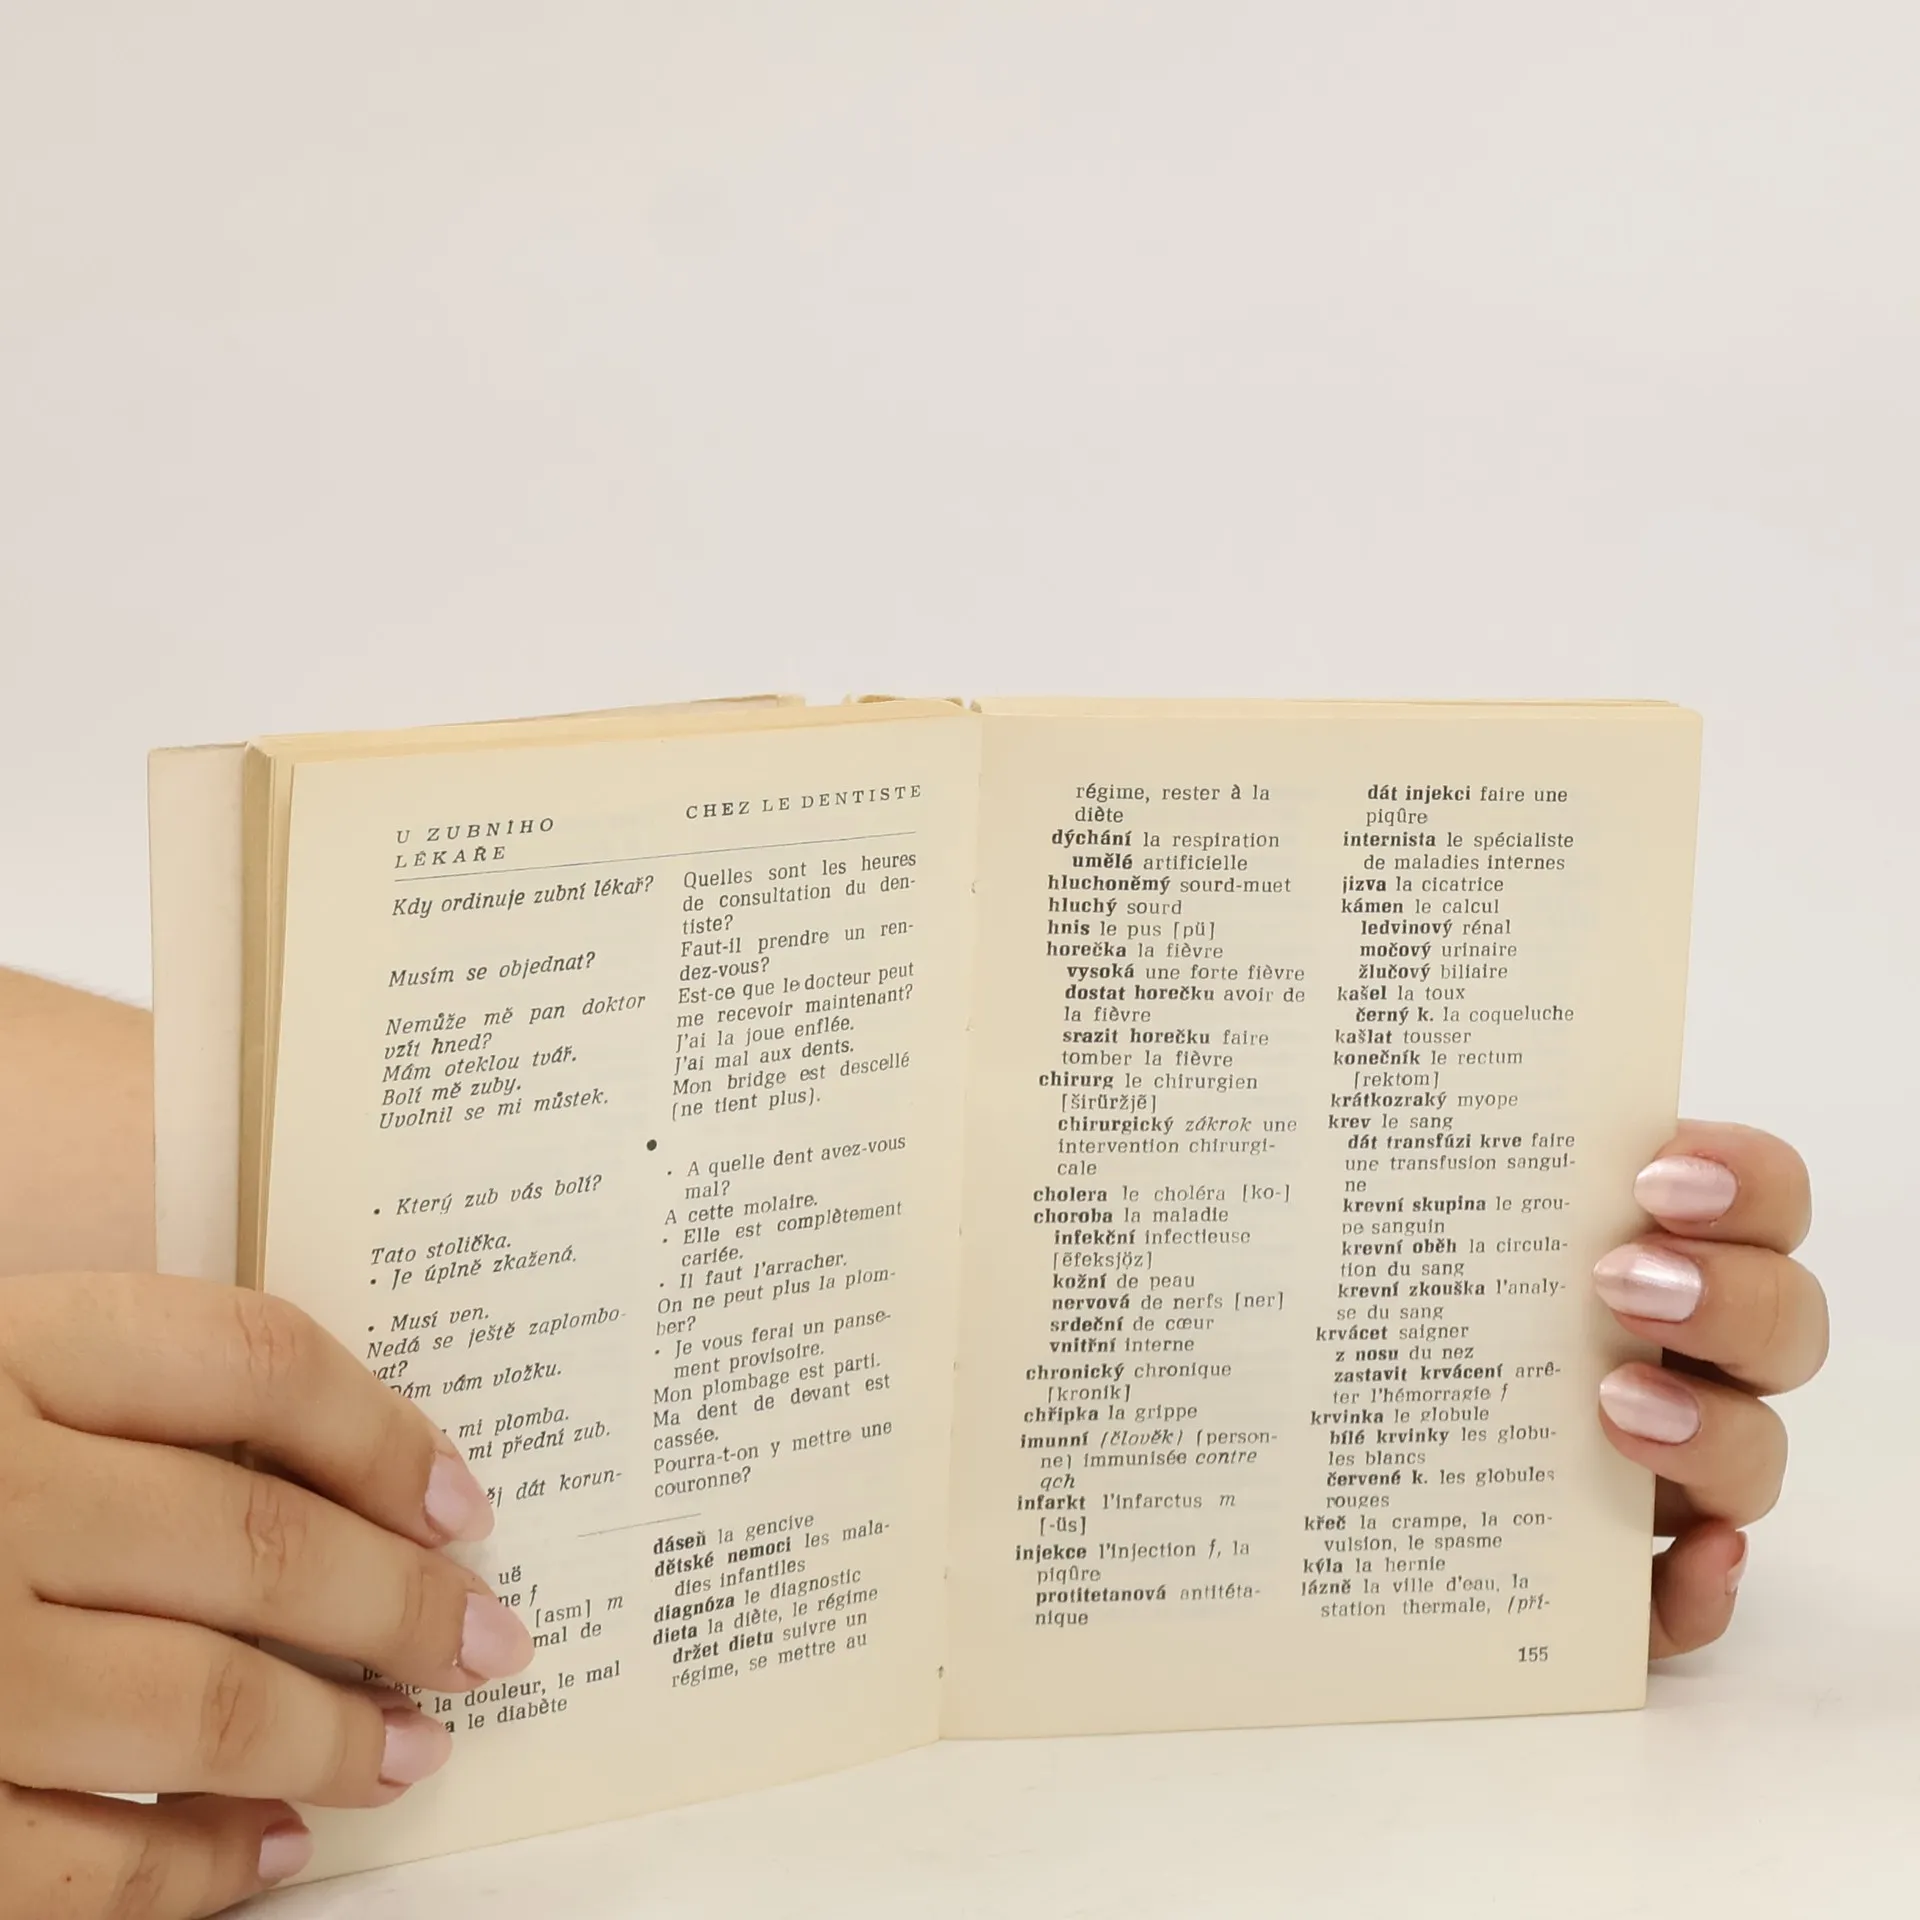 U ZUBNÍHO
LÉKAŘE
Kdy ordinuje zubní lékař?
Musím se objednat?
Nemůže mě pan doktor
vzít hned?
Mám oteklou tvář.
Bolí mě zuby.
Uvolnil se mi můstek.
• Který zub vás bolí?
Tato stolička.
• Je úplně zkažená.
• Musí ven.
Nedá se ještě zaplombo-
vat?
Dám vám vložku.
mi plomba.
mi přední zub.
dát korun-
[asm] m
mal de
la douleur, le mal
le diabète
CHEZ LE DENTISTE
Quelles sont les heures
de consultation du den-
tiste?
Faut-il prendre un ren-
dez-vous?
Est-ce que le docteur peut
me recevoir maintenant?
J'ai la joue enflée.
J'ai mal aux dents.
Mon bridge est descellé
(ne tient plus).
•
• A quelle dent avez-vous
mal?
A cette molaire.
• Elle est complètement
cariée.
• Il faut l'arracher.
On ne peut plus la plom-
ber?
• Je vous ferai un panse-
ment provisoire.
Mon plombage est parti.
Ma dent de devant est
cassée.
Pourra-t-on y mettre une
couronne?
dáseň la gencive
dětské nemoci les mala-
dies infantiles
diagnóza le diagnostic
dieta la diète, le régime
držet dietu suivre un
régime, se mettre au
régime, rester à la
diète
dýchání la respiration
umělé artificielle
hluchoněmý sourd-muet
hluchý sourd
hnis le pus [pü]
horečka la fièvre
vysoká une forte fièvre
dostat horečku avoir de
la fièvre
srazit horečku faire
tomber la fièvre
chirurg le chirurgien
[širüržjẽ]
chirurgický zákrok une
intervention chirurgi-
cale
cholera le choléra [ko-]
choroba la maladie
infekční infectieuse
[ẽfeksjöz]
kožní de peau
nervová de nerfs [ner]
srdeční de cœur
vnitřní interne
chronický chronique
[kronik]
chřipka la grippe
imunní (člověk) (person-
ne) immunisée contre
qch
infarkt l'infarctus m
[-üs]
injekce l'injection f, la
piqûre
protitetanová antitéta-
nique
dát injekci faire une
piqûre
internista le spécialiste
de maladies internes
jizva la cicatrice
kámen le calcul
ledvinový rénal
močový urinaire
žlučový biliaire
kašel la toux
černý k. la coqueluche
kašlat tousser
konečník le rectum
[rektom]
krátkozraký myope
krev le sang
dát transfúzi krve faire
une transfusion sangui-
ne
krevní skupina le grou-
pe sanguin
krevní oběh la circula-
tion du sang
krevní zkouška l'analy-
se du sang
krvácet saigner
z nosu du nez
zastavit krvácení arrê-
ter l'hémorragie f
krvinka le globule
bílé krvinky les globu-
les blancs
červené k. les globules
rouges
křeč la crampe, la con-
vulsion, le spasme
kýla la hernie
lázně la ville d'eau, la
station thermale, (pří-
155